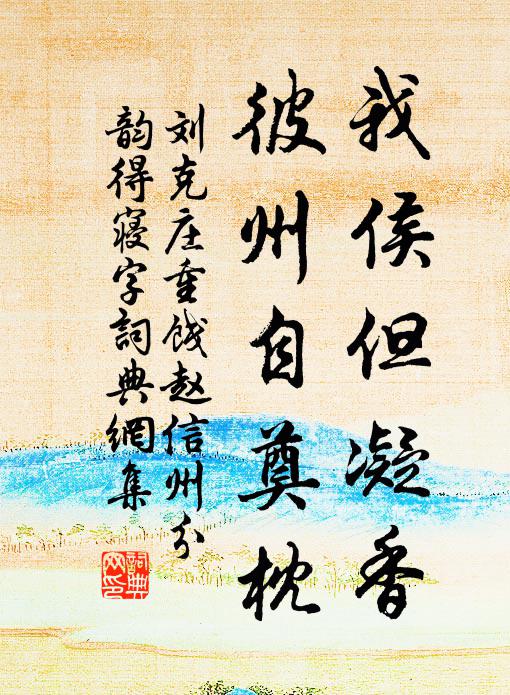 我侯但凝香
彼州自奠枕
刘克庄重饯赵信州分
韵得寝字詞典網集
詞典
网印